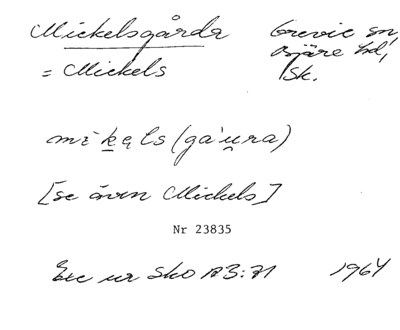 Mickelsgårda Grevie sn,
= Mickels Bjäre hd,
Sk.
mikəls (gȧ'ura)
[se även Mickels]
Nr 23835
Exc ur Sko A3:71 1964